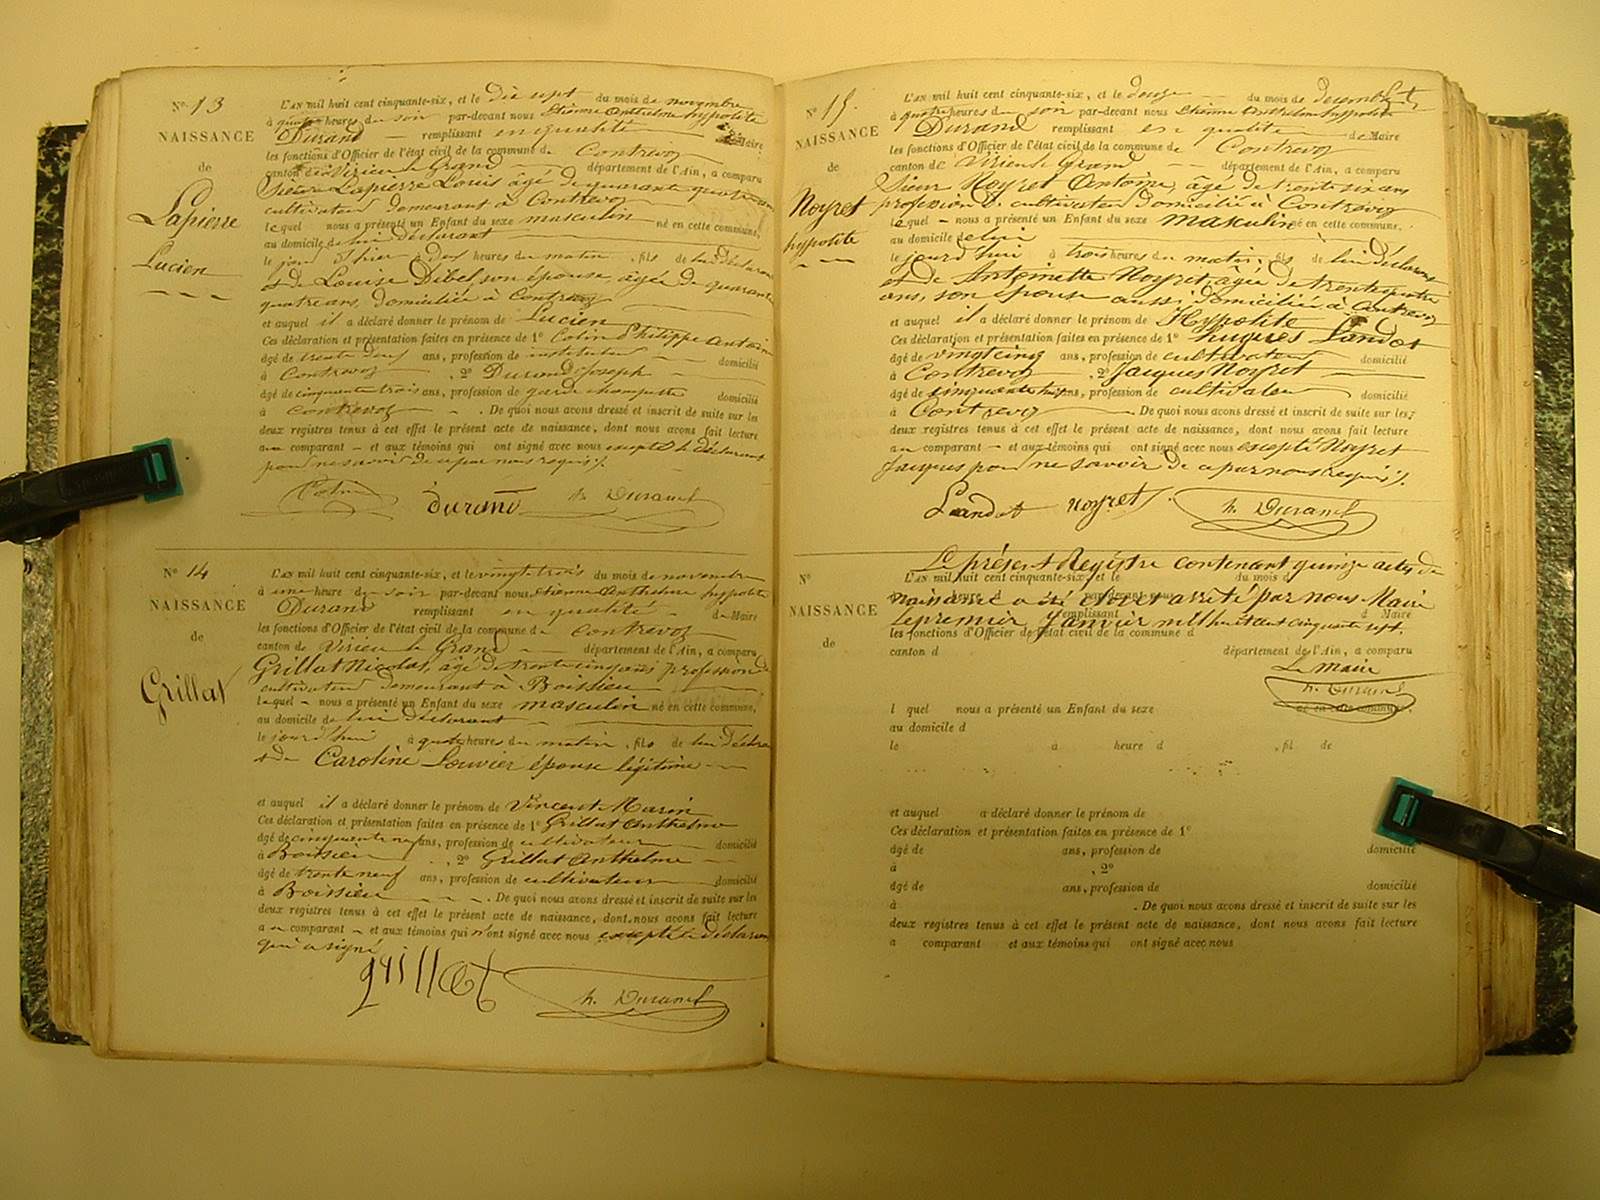 N° 13
NAISSANCE
de
Lapierre
Lucien
L'AN mil huit cent cinquante-six, et le dix sept du mois de novembre
à quatre heures du soir par-devant nous Etienne Anthelme hypolite
Durand remplissant en qualité de Maire
les fonctions d'Officier de l'état civil de la commune de Contrevoz
canton de Virieu le Grand département de l'Ain, a comparu
Sieur Lapierre Louis âgé de quarante quatre ans
cultivateur demeurant à Contrevoz
lequel nous a présenté un Enfant du sexe masculin né en cette commune,
au domicile de lui déclarant
le jour d'hier à deux heures du matin, fils de lui déclarant
et de Louise Dibel son épouse, âgée de quarante
quatre ans, domiciliée à Contrevoz
et auquel il a déclaré donner le prénom de Lucien
Ces déclaration et présentation faites en présence de 1° Colin Philippe Antoine
âgé de trente deux ans, profession de instituteur domicilié
à Contrevoz, 2° Durand Joseph
âgé de cinquante trois ans, profession de garde champetre domicilié
à Contrevoz. De quoi nous avons dressé et inscrit de suite sur les
deux registres tenus à cet effet le présent acte de naissance, dont nous avons fait lecture
au comparant et aux témoins qui ont signé avec nous excepté le déclarant
pour ne savoir de ce par nous requis.
Colin Durand h. Durand
N° 14
NAISSANCE
de
Grillat
L'AN mil huit cent cinquante-six, et le vingt trois du mois de novembre
à une heure du soir par-devant nous Etienne Anthelme hypolite
Durand remplissant en qualité de Maire
les fonctions d'Officier de l'état civil de la commune de Contrevoz
canton de Virieu le Grand département de l'Ain, a comparu
Grillat Nicolas, âgé de trente cinq ans profession de
cultivateur demeurant à Boissieu
lequel nous a présenté un Enfant du sexe masculin né en cette commune,
au domicile de lui déclarant
le jourd'hui à quatre heures du matin, fils de lui déclarant
et de Caroline Louvier épouse légitime
et auquel il a déclaré donner le prénom de Vincent Marin
Ces déclaration et présentation faites en présence de 1° Grillat Anthelme
âgé de cinquante neuf ans, profession de cultivateur domicilié
à Boissieu, 2° Grillat Anthelme
âgé de trente neuf ans, profession de cultivateur domicilié
à Boissieu. De quoi nous avons dressé et inscrit de suite sur les
deux registres tenus à cet effet le présent acte de naissance, dont nous avons fait lecture
au comparant et aux témoins qui n'ont signé avec nous excepté le déclarant
qui a signé
grillat h. Durand
N° 15.
NAISSANCE
de
Noyret
hypolite
L'AN mil huit cent cinquante-six, et le douze du mois de decembre
à quatre heures du soir par-devant nous Etienne Anthelme hypolite
Durand remplissant en qualité de Maire
les fonctions d'Officier de l'état civil de la commune de Contrevoz
canton de Virieu le Grand département de l'Ain, a comparu
Sieur Noyret Antoine, âgé de trente six ans
profession de cultivateur domicilié à Contrevoz
lequel nous a présenté un Enfant du sexe masculin né en cette commune,
au domicile de lui
le jourd'hui à trois heures du matin, fils de lui déclarant
et de Antoinette Noyret, âgée de trente quatre
ans, son épouse aussi domiciliée à Contrevoz
et auquel il a déclaré donner le prénom de Hypolite
Ces déclaration et présentation faites en présence de 1° hugues Landot
âgé de vingt cinq ans, profession de cultivateur domicilié
à Contrevoz, 2° Jacques Noyret
âgé de cinquante ans, profession de cultivateur domicilié
à Contrevoz. De quoi nous avons dressé et inscrit de suite sur les
deux registres tenus à cet effet le présent acte de naissance, dont nous avons fait lecture
au comparant et aux témoins qui ont signé avec nous excepté Noyret
Jacques pour ne savoir de ce par nous requis.
Landot noyret h. Durand
Le présent Registre contenant quinze actes de
naissance a été clos et arrêté par nous Maire
le premier Janvier mil huit cent cinquante sept.
Le Maire
h. Durand
N°
NAISSANCE
de
L'AN mil huit cent cinquante-six, et le du mois d
à heure d par-devant nous
remplissant d Maire
les fonctions d'Officier de l'état civil de la commune d
canton d département de l'Ain, a comparu
l quel nous a présenté un Enfant du sexe né en cette commune,
au domicile d
le à heure d, fil de
et auquel a déclaré donner le prénom de
Ces déclaration et présentation faites en présence de 1°
âgé de ans, profession de domicilié
à, 2°
âgé de ans, profession de domicilié
à. De quoi nous avons dressé et inscrit de suite sur les
deux registres tenus à cet effet le présent acte de naissance, dont nous avons fait lecture
a comparant et aux témoins qui ont signé avec nous